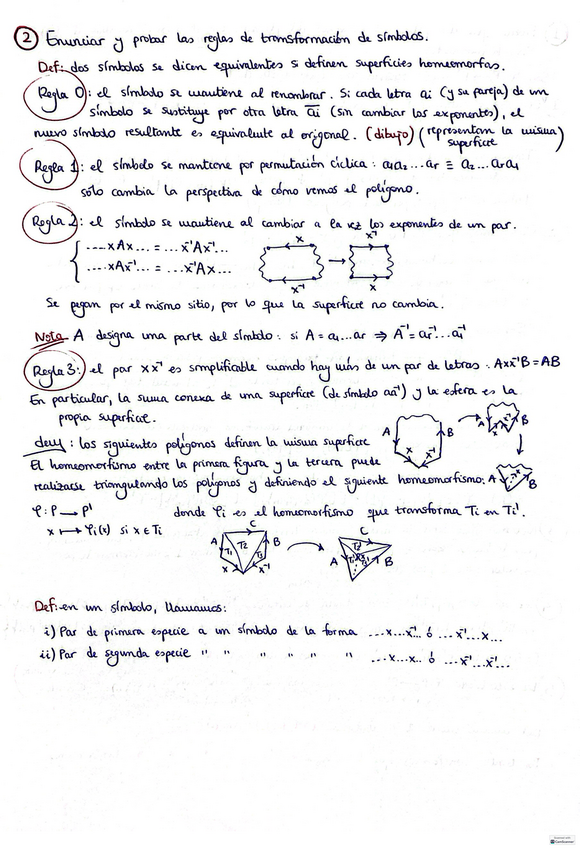 ② Enunciar y probar las reglas de transformación de símbolos.
Def: dos símbolos se dicen equivalentes si definen superficies homeomorfas.
Regla 0: el símbolo se mantiene al renombrar. Si cada letra ai (y su pareja) de un
símbolo se sustituye por otra letra a̅i (sin cambiar los exponentes), el
nuevo símbolo resultante es equivalente al original. (dibujo) (representan la misma
superficie)
Regla 1: el símbolo se mantiene por permutación cíclica: a₁a₂...ar ≡ a₂...ara₁
sólo cambia la perspectiva de cómo vemos el polígono.
Regla 2: el símbolo se mantiene al cambiar a la vez los exponentes de un par.
....xAx... = ...x⁻¹Ax⁻¹...
....xAx⁻¹... = ...x⁻¹Ax...
x x⁻¹
x⁻¹ x
Se pegan por el mismo sitio, por lo que la superficie no cambia.
Nota A designa una parte del símbolo: si A = a₁...ar ⇒ A⁻¹ = ar⁻¹...a₁⁻¹
Regla 3: el par xx⁻¹ es simplificable cuando hay más de un par de letras: Axx⁻¹B = AB
En particular, la suma conexa de una superficie (de símbolo aa⁻¹) y la esfera es la
propia superficie.
A B x x⁻¹ A B
dem: los siguientes polígonos definen la misma superficie
El homeomorfismo entre la primera figura y la tercera puede
realizarse triangulando los polígonos y definiendo el siguiente homeomorfismo. A B
φ: P → P' donde φi es el homeomorfismo que transforma Ti en Ti'.
x ↦ φi(x) si x ∈ Ti
C C
A T₁ T₂ T₃ B A B
x x⁻¹
Def: en un símbolo, llamamos:
i) Par de primera especie a un símbolo de la forma ...x...x⁻¹... ó ...x⁻¹...x...
ii) Par de segunda especie " " " " " " ...x...x... ó ...x⁻¹...x⁻¹...
CamScanner